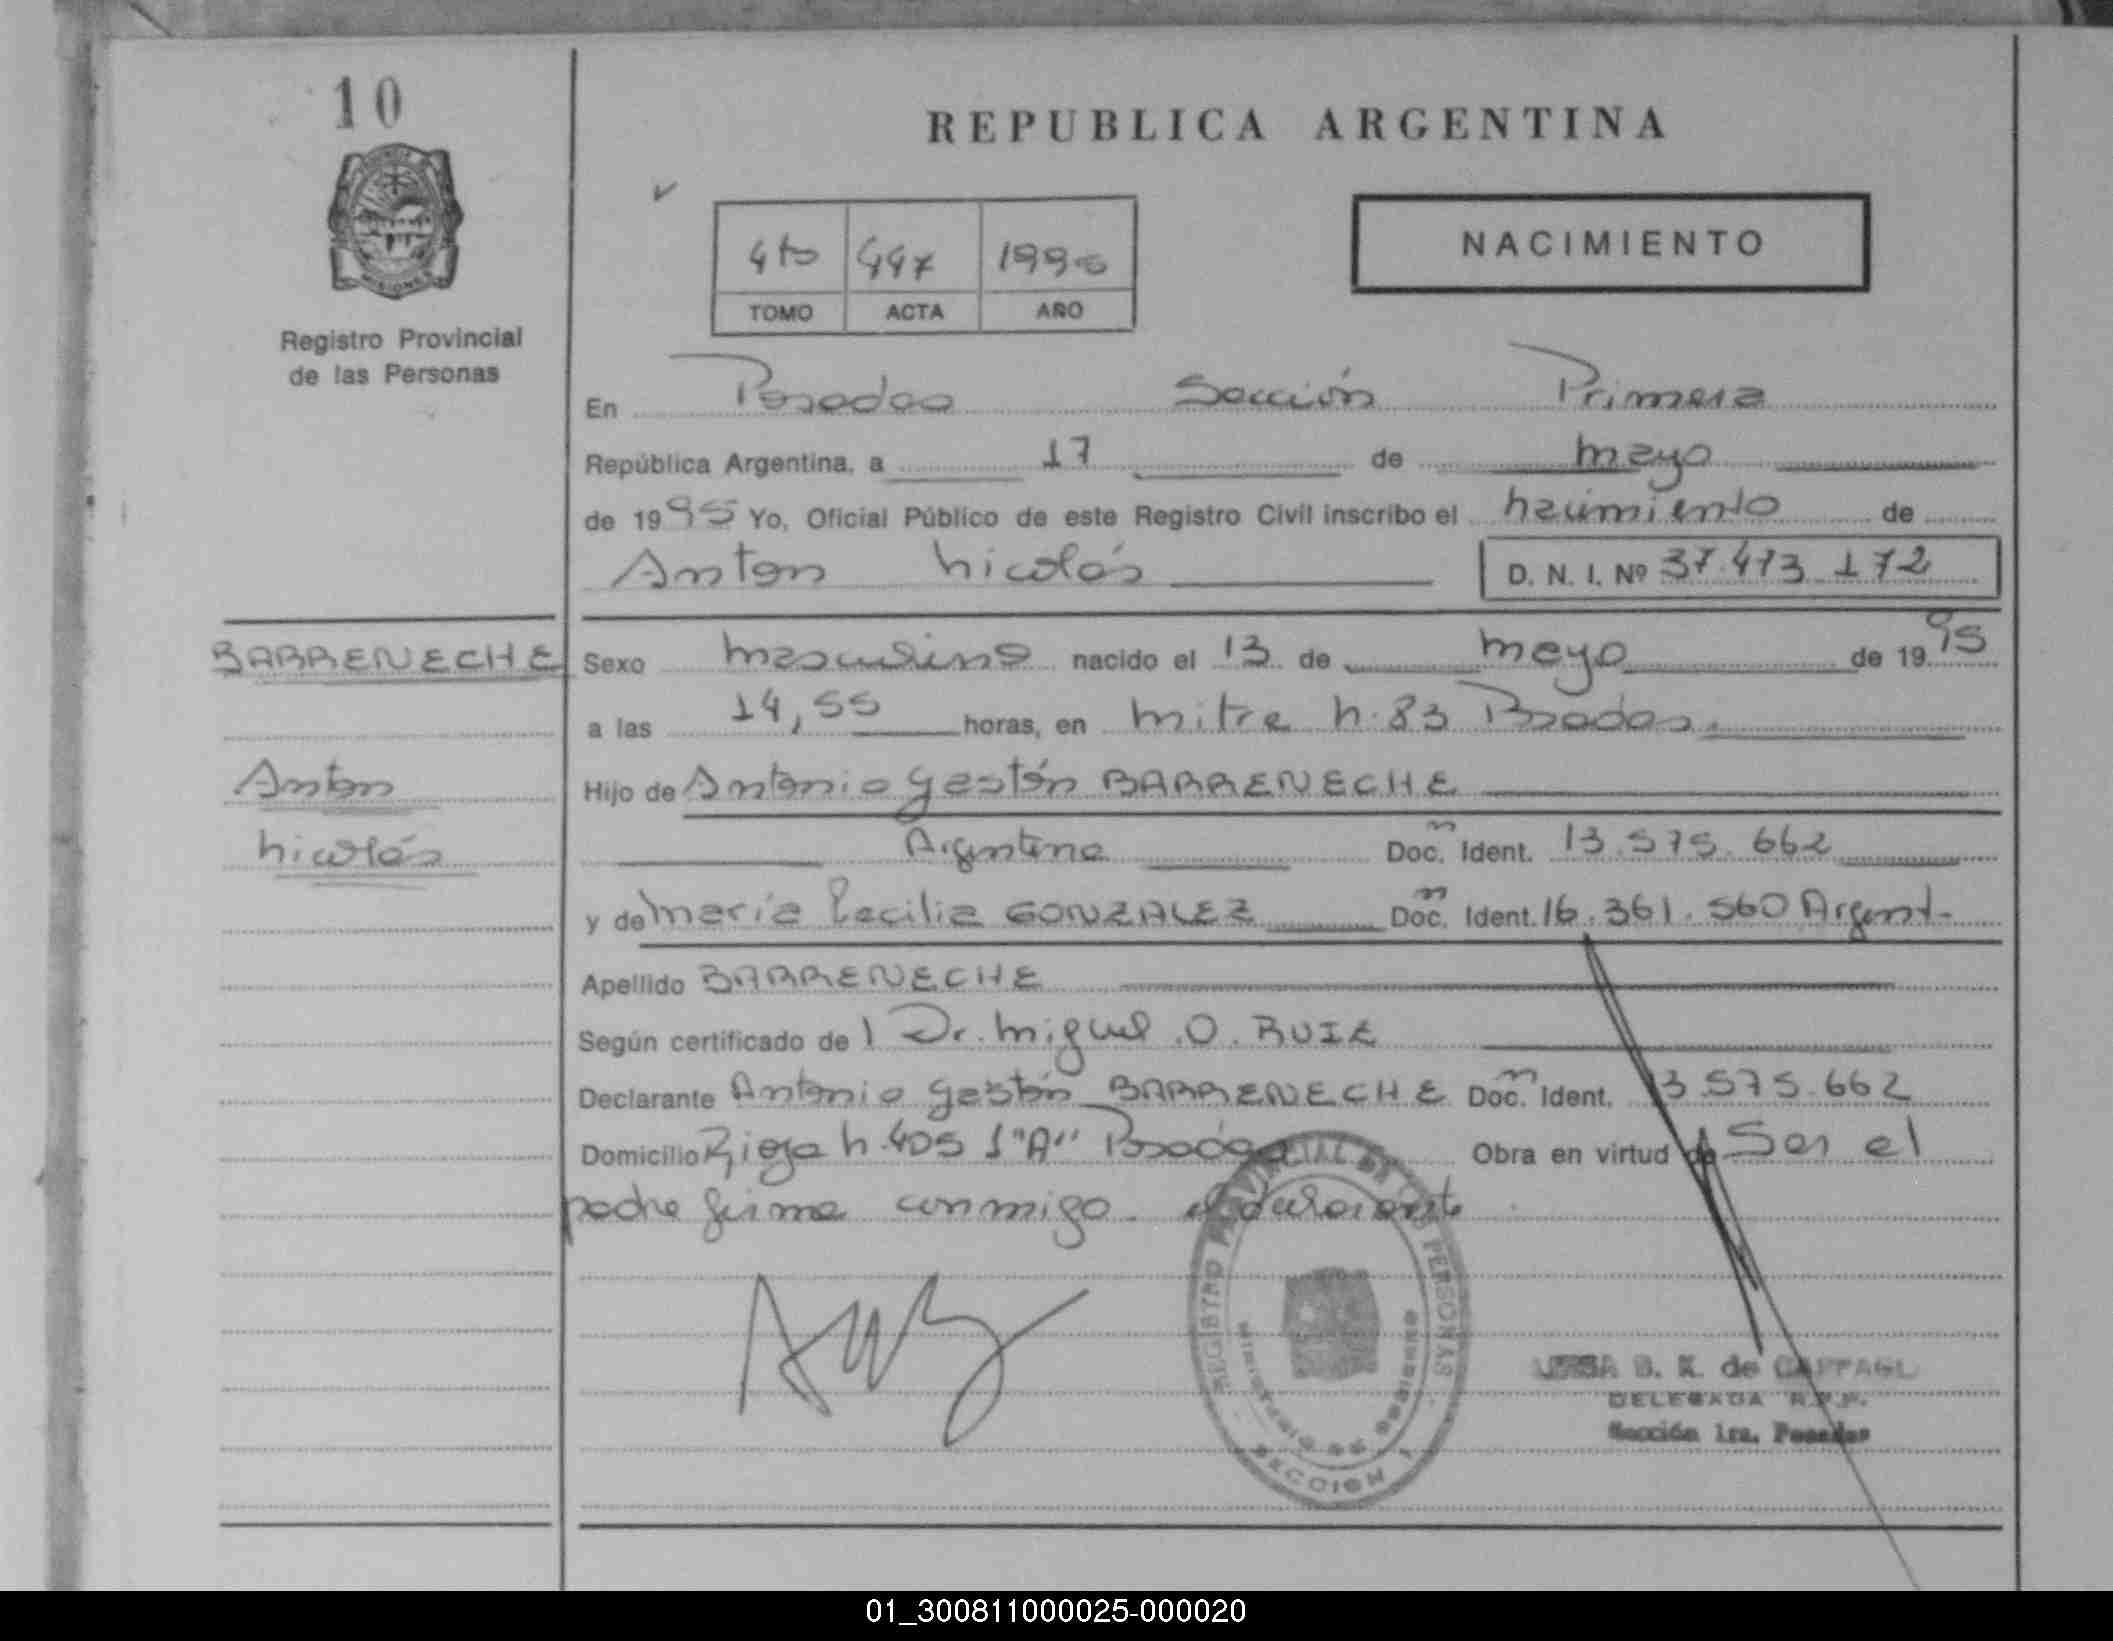 10
REPUBLICA ARGENTINA
NACIMIENTO
4to 447 1995
TOMO ACTA AÑO
Registro Provincial
de las Personas
En Posadas Sección Primera
República Argentina, a 17 de mayo
de 1995 Yo, Oficial Público de este Registro Civil inscribo el nacimiento de
Anton Nicolás D. N. I. Nº 37.473.172
BARRENECHE
Sexo masculino nacido el 13 de mayo de 1995
a las 14,55 horas, en Mitre N. 83 Posadas.
Anton
Hijo de Antonio Gastón BARRENECHE
Nicolás
Argentino Doc. Ident. 13.575.662
y de María Cecilia GONZALEZ Doc. Ident. 16.361.560 Argent.
Apellido BARRENECHE
Según certificado de l Dr. Miguel O. RUIZ
Declarante Antonio Gastón BARRENECHE Doc. Ident. 13.575.662
Domicilio Rioja N. 405 1 "A" Posadas Obra en virtud de Ser el
padre firma conmigo el
REGISTRO PROVINCIAL DE LAS PERSONAS
MINISTERIO DE GOBIERNO
SECCION 1
B. K. de
DELEGADA R.P.P.
Sección 1ra. Posadas
01_300811000025-000020